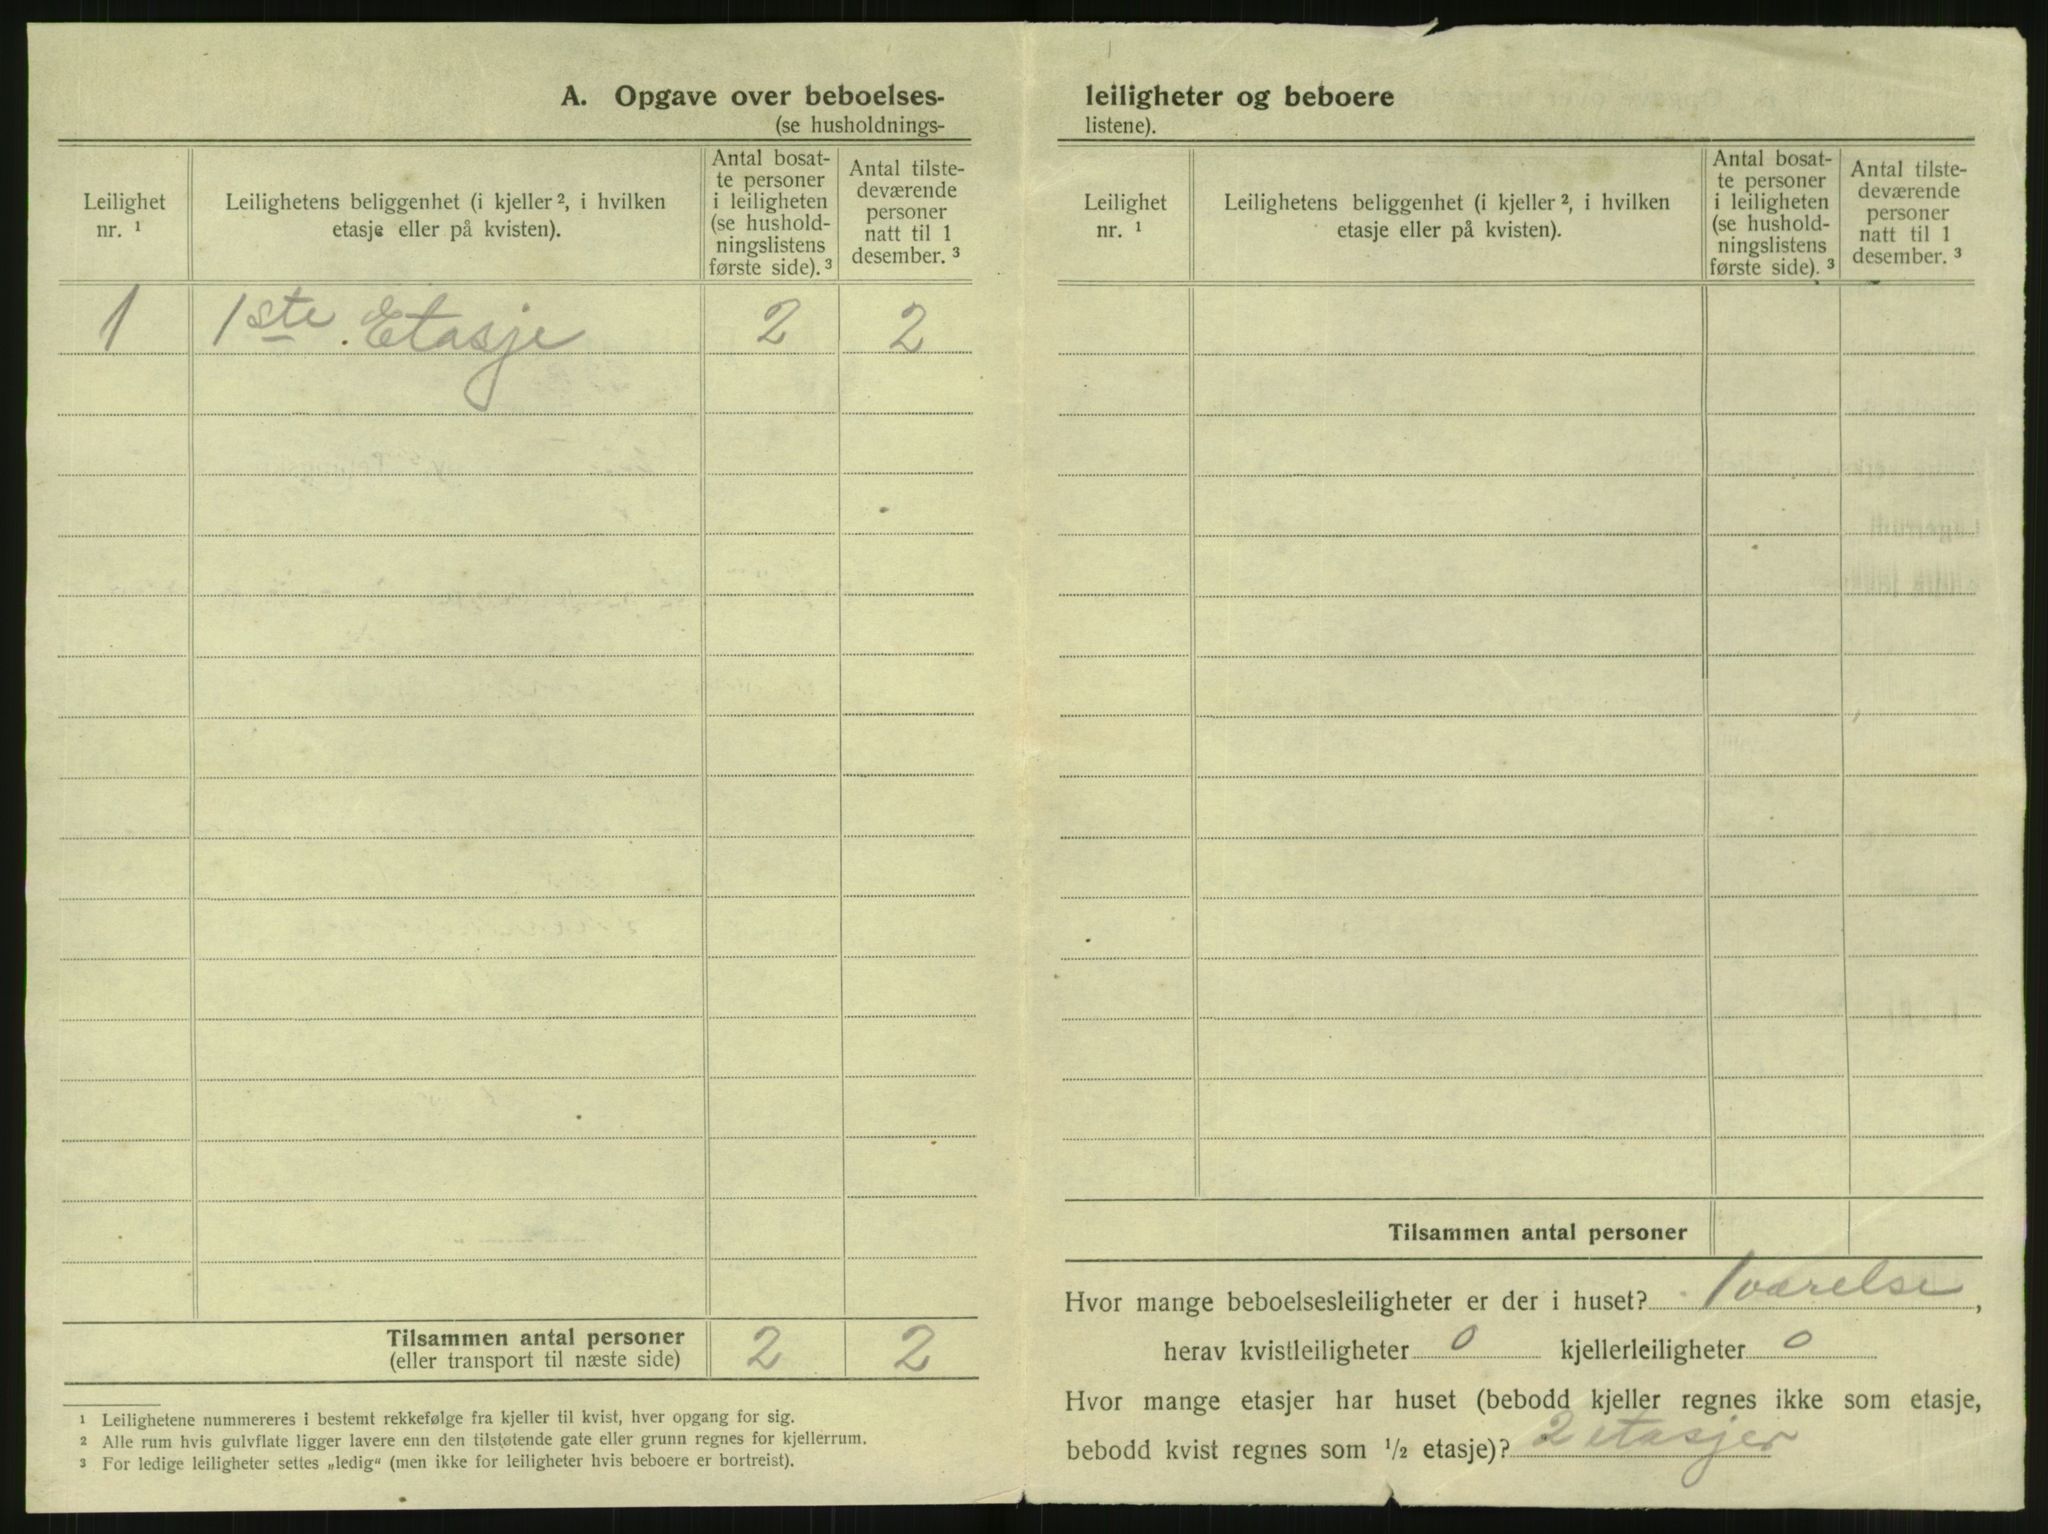 A. Opgave over beboelses-
(se husholdnings-
Leilighet
nr. ¹
Leilighetens beliggenhet (i kjeller ², i hvilken
etasje eller på kvisten).
Antal bosat-
te personer
i leiligheten
(se hushold-
ningslistens
første side). ³
Antal tilste-
deværende
personer
natt til 1
desember. ³
1 1ste. Etasje 2 2
Tilsammen antal personer 2 2
(eller transport til næste side)
¹ Leilighetene nummereres i bestemt rekkefølge fra kjeller til kvist, hver opgang for sig.
² Alle rum hvis gulvflate ligger lavere enn den tilstøtende gate eller grunn regnes for kjellerrum.
³ For ledige leiligheter settes „ledig“ (men ikke for leiligheter hvis beboere er bortreist).
leiligheter og beboere
listene).
Leilighet
nr. ¹
Leilighetens beliggenhet (i kjeller ², i hvilken
etasje eller på kvisten).
Antal bosat-
te personer
i leiligheten
(se hushold-
ningslistens
første side). ³
Antal tilste-
deværende
personer
natt til 1
desember. ³
Tilsammen antal personer
Hvor mange beboelsesleiligheter er der i huset? 1 værelse,
herav kvistleiligheter 0 kjellerleiligheter 0
Hvor mange etasjer har huset (bebodd kjeller regnes ikke som etasje,
bebodd kvist regnes som 1/2 etasje)? 2 etasjer